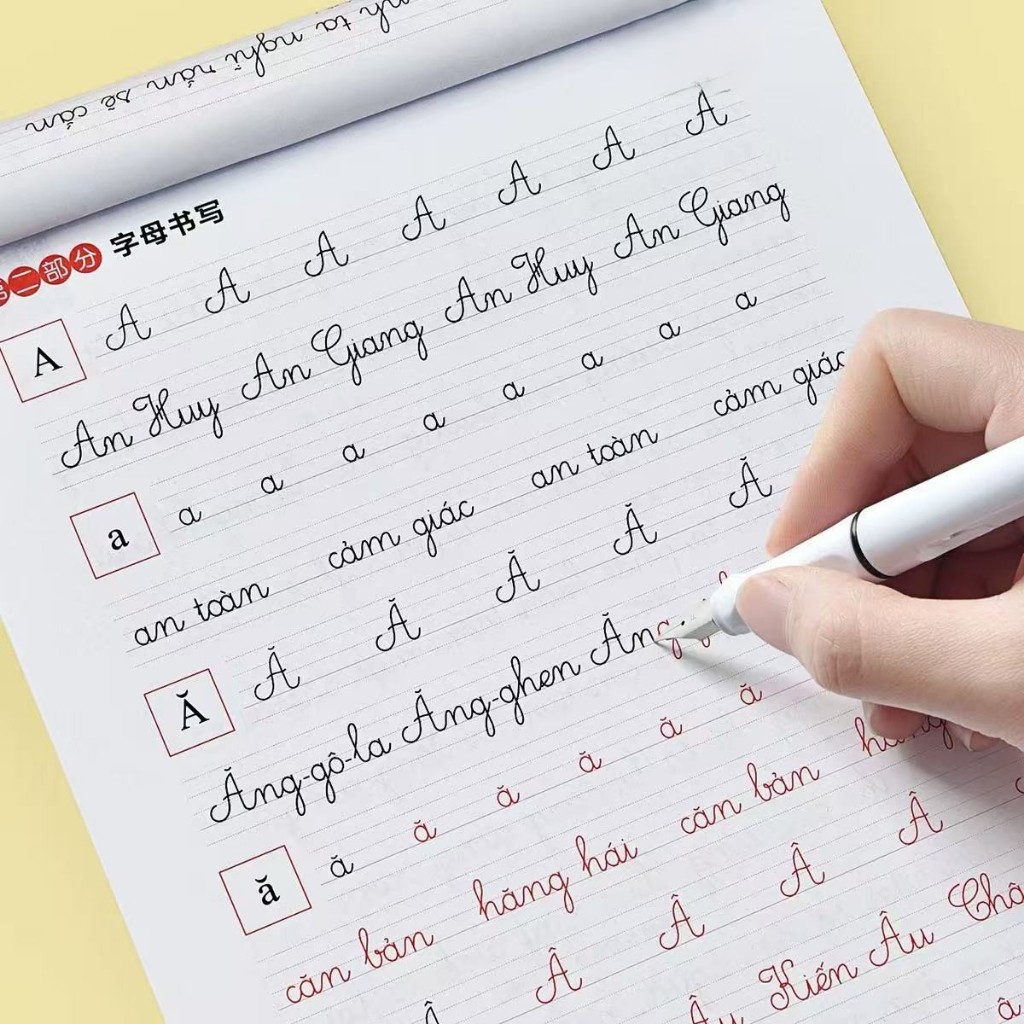 第二部分 字母书写
A A A A A A A A
An Huy An Giang An Huy An Giang
a a a a a a a a a
an toàn cảm giác an toàn cảm giác
Ă Ă Ă Ă Ă Ă
Ăng-gô-la Ăng-ghen Ăng
ă ă ă ă ă ă ă
căn bản hăng hái căn bản hăng
Â Â Â Â Â
Âu Kiến Âu
â